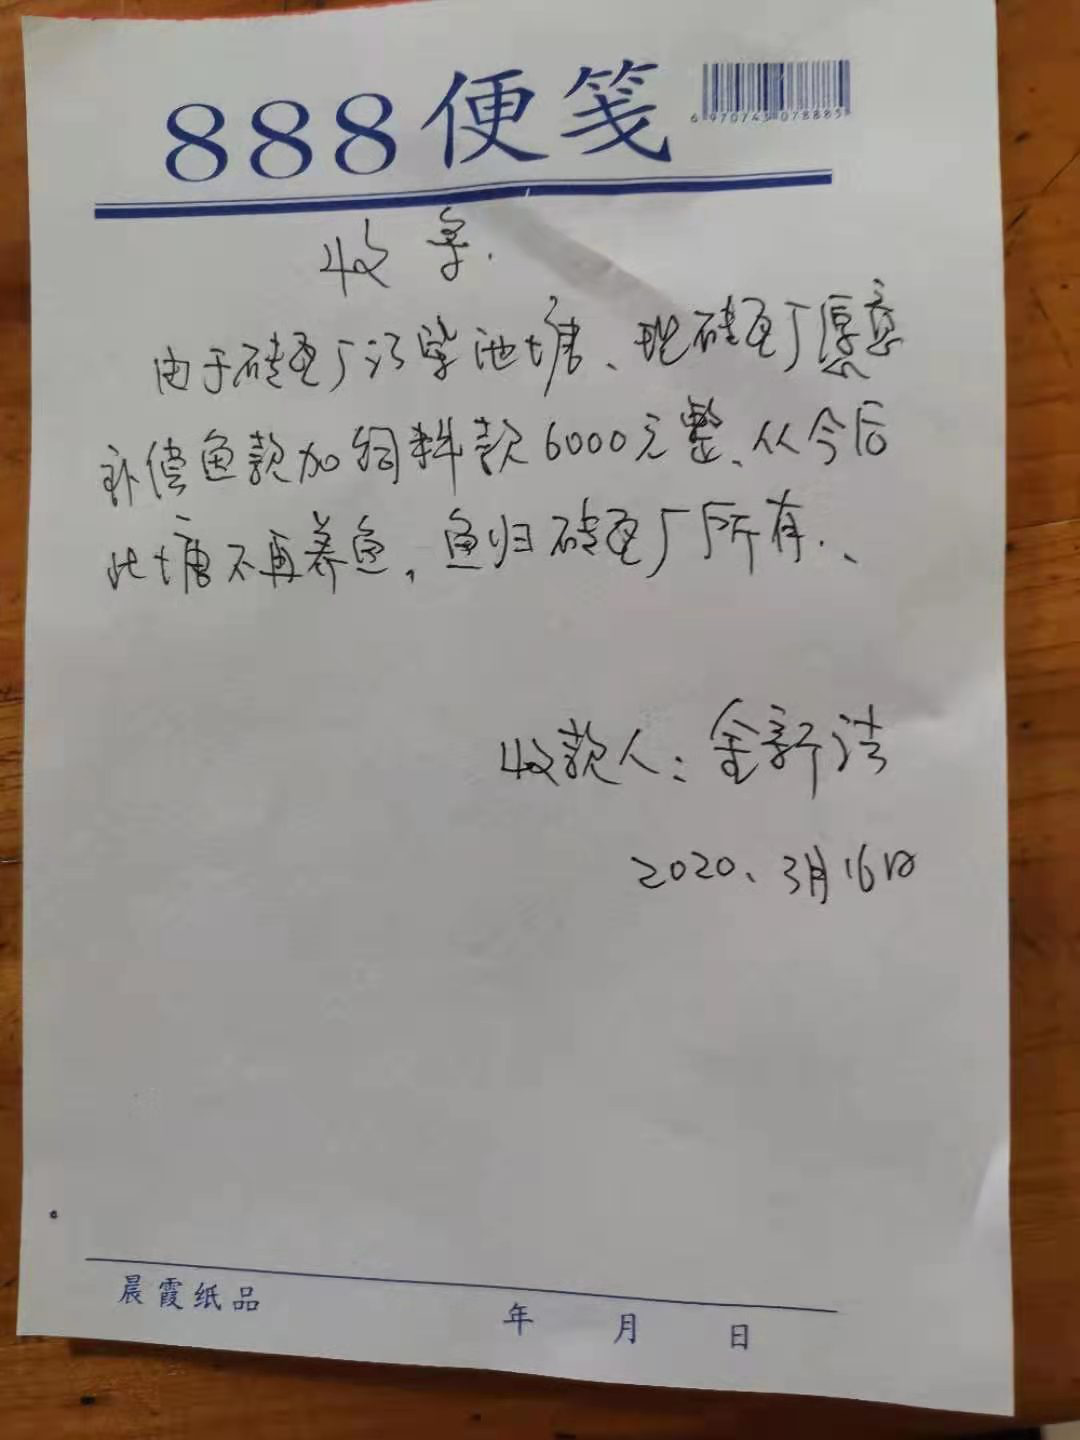 888便笺
6970743078885
收条.
由于砖瓦厂污染池塘、现砖瓦厂愿意
补偿鱼款加饲料款6000元整、从今后
此塘不再养鱼,鱼归砖瓦厂所有.、
收款人:金新法
2020、3月16日
晨霞纸品 年 月 日